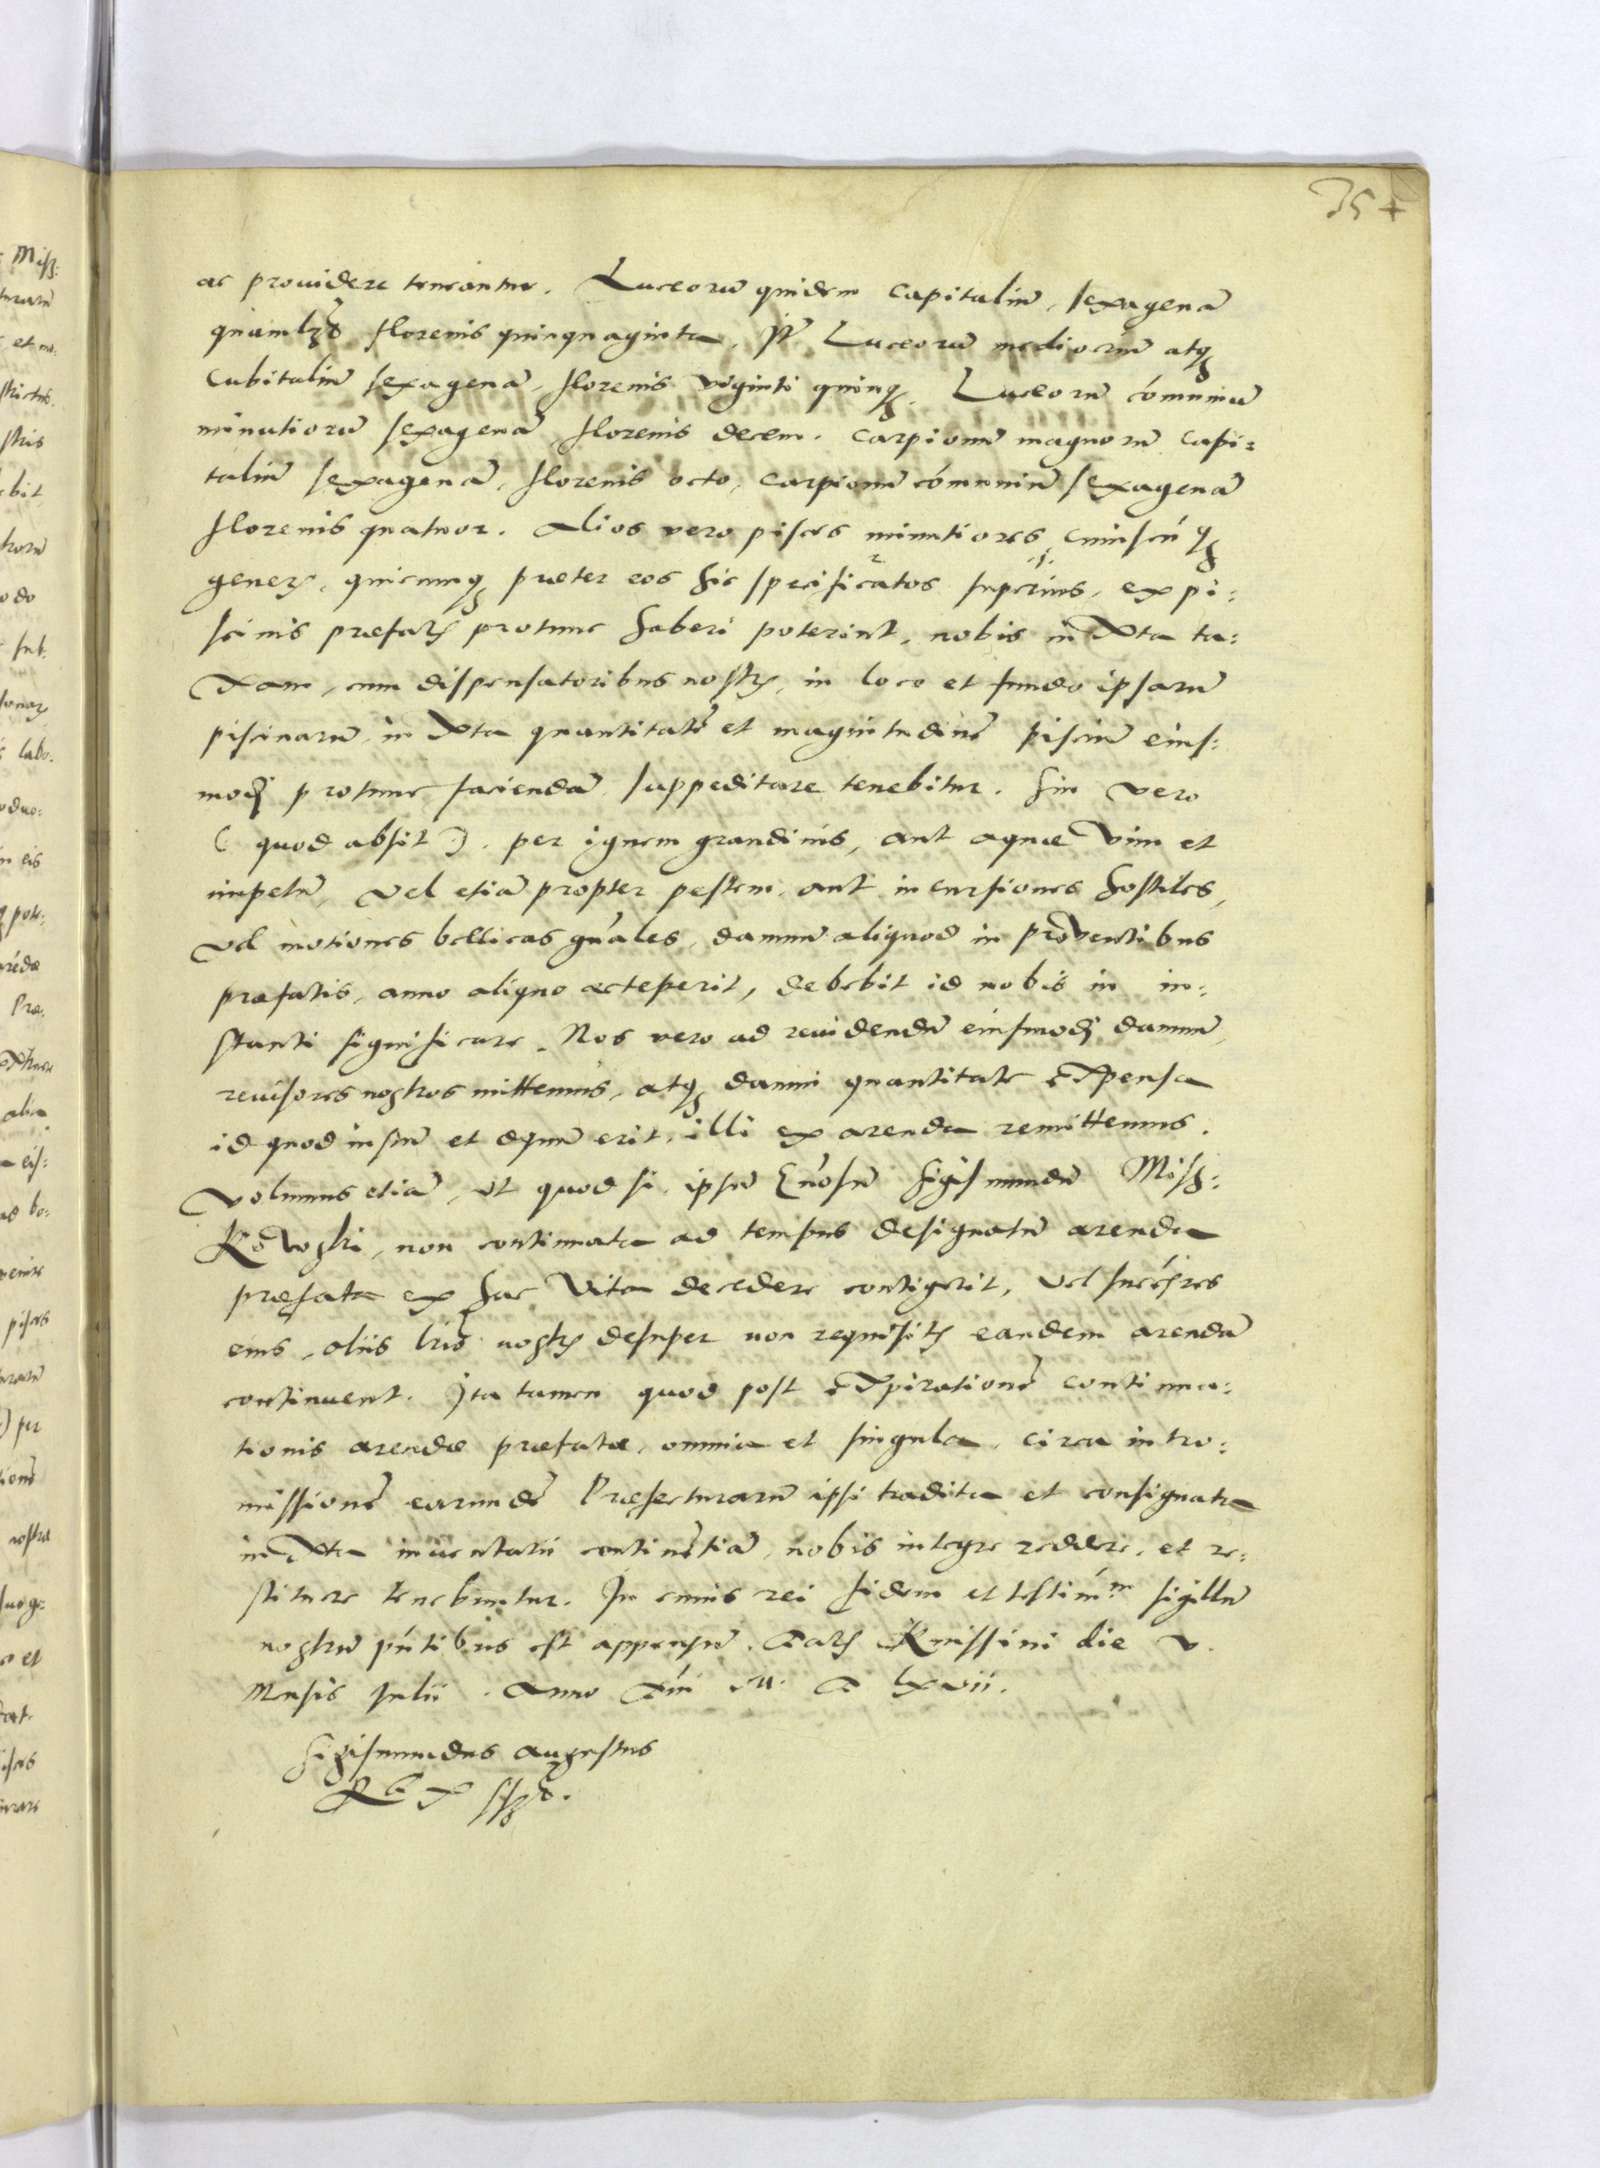 35
ac prouidere teneantur. Luceorū quidem capitaliū, sexagenā
quamlꝫ florenis quinquaginta, Itē Luceorū mediocriū atqꝫ
cubitaliū sexagenā, florenis viginti quinqꝫ. Luceorū cōmuniū
minutiorū sexagenā, florenis decem. Carpionū magnorū capi:
taliū sexagenā, florenis octo, carpionū cōmuniū sexagenā
florenis quatuor. Alios vero pisces minutiores, cuiuscūqꝫ
generꝭ, quicunqꝫ praeter eos hic specificatos superius, ex pi:
scinis praefatꝭ protunc haberi poterint, nobis in Xta ta:
xam, cum dispensatoribus nostrꝭ, in loco et fundo ipsarū
piscinarū, in Xta quantitatē et magnitudinē pisciū eius:
modj protunc faciendā suppeditare tenebitur. Sin vero
(: quod absit :). per ignem grandinis, aut aquae vim et
impetū, vel etiā propter pestem, aut incursiones hostiles,
vel motiones bellicas gn̄ales, damnū aliquod in proventibus
praefatis, anno aliquo acceperit, debebit id nobis in in:
stanti significare. Nos vero ad reuidendū eiusmodj damnū,
reuisores nostros mittemus, atqꝫ damni quantitate expensa
id quod iustū et aequū erit, illi ex arenda remittemus.
Volumus etiā, ut quod si ipsū Gn̄osū Sigismundū Misz:
kowski, non continuata ad tempus designatū arenda
praefata ex hac vita decedere contigerit, vel succ̄ores
eius, aliis lr̄is nostrꝭ desuper non requisitꝭ eandem arendā
continuent. Ita tamen quod post expirationē continua:
tionis arendae praefatae, omnia et singula, circa intro:
missionē earundē Praefecturarū ipsi tradita et consignata
in Xta inuentarii continentiā, nobis integre reddere, et re:
stituere tenebuntur. In cuius rei fidem et testim̄m sigillū
nostrū pn̄tibus est appensū. Datꝭ Knissini die v.
Mensis Julii. Anno Dn̄i M. D lxvii.
Sigismundus augustus
Rex sszt.